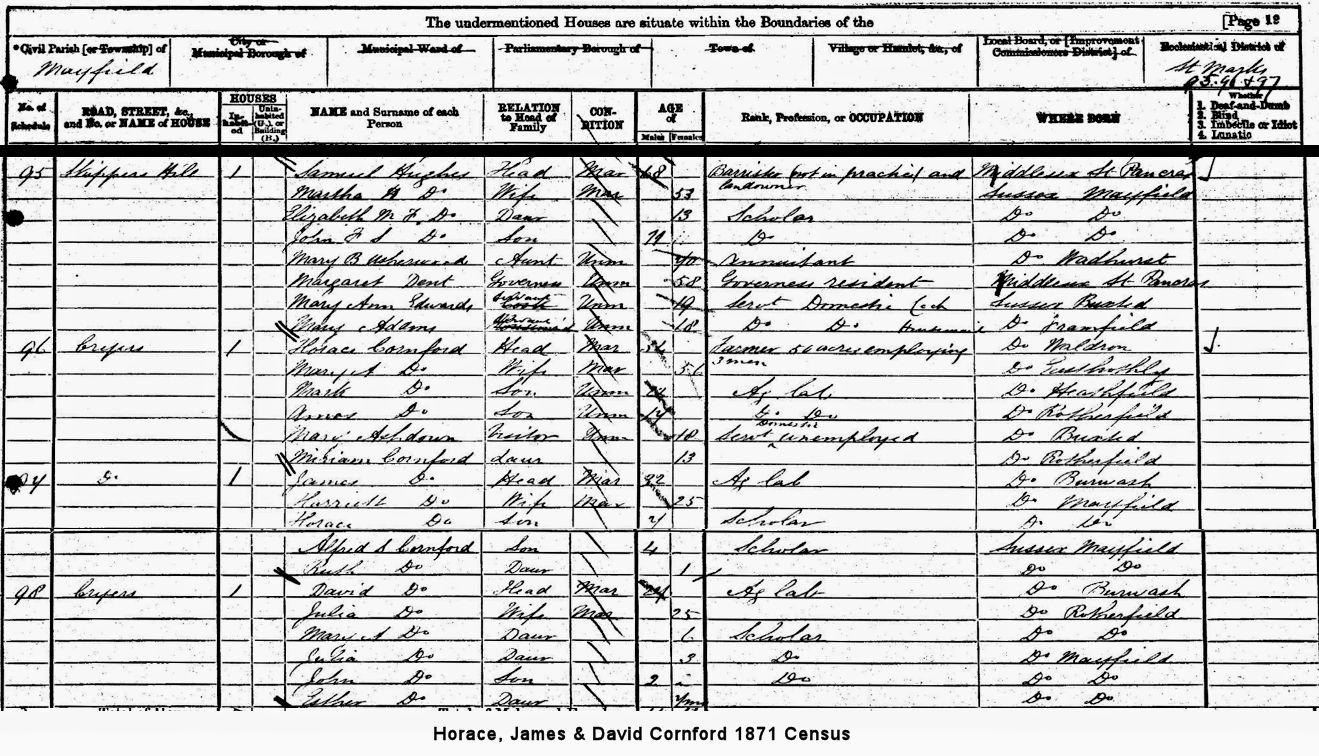 The undermentioned Houses are situate within the Boundaries of the [Page 12
Civil Parish [or Township] of City or Municipal Borough of Municipal Ward of Parliamentary Borough of Town of Village or Hamlet, &c., of Local Board, or [Improvement Commissioners District] of Ecclesiastical District of
Mayfield St Marks
95.96 & 97
No. of Schedule ROAD, STREET, &c., and No. or NAME of HOUSE HOUSES Inhabited Uninhabited (U.), or Building (B.) NAME and Surname of each Person RELATION to Head of Family CONDITION AGE of Males Females Rank, Profession, or OCCUPATION WHERE BORN Whether 1. Deaf-and-Dumb 2. Blind 3. Imbecile or Idiot 4. Lunatic
95 Skippers Hill 1 Samuel Hughes Head Mar 68 Barrister (not in practice) and landowner Middlesex St Pancras
Martha Do Wife Mar 53 Sussex Mayfield
Elizabeth M F Do Daur 13 Scholar Do Do
John F S Do Son 11 Do Do Do
Mary B Usherwood Aunt Unm Annuitant Do Wadhurst
Margaret Dent Governess Unm 58 Governess resident Middlesex St Pancras
Mary Ann Edwards Servant Unm 19 Servt Domestic Sussex Buxted
Mary Adams Servant Unm 18 Do Do Housemaid Do Framfield
96 Cryers 1 Horace Cornford Head Mar Farmer 50 acres employing 3 men Do Waldron
Mary A Do Wife Mar 56 Do Easthothly
Mark Do Son Unm Ag lab Do Heathfield
Amos Do Son Unm Do Do Do Rotherfield
Mary Ashdown Visitor Unm 18 Servt Domestic unemployed Do Buxted
Miriam Cornford daur 13 Do Rotherfield
97 Do 1 James Do Head Mar Ag lab Do Burwash
Harriett Do Wife Mar 25 Do Mayfield
Horace Do Son Scholar Do Do
Alfred Cornford Son 4 Scholar Sussex Mayfield
Ruth Do Daur 1 Do Do
98 Cryers 1 David Do Head Mar Ag lab Do Burwash
Julia Do Wife Mar 25 Do Rotherfield
Mary A Do Daur 6 Scholar Do Do
Julia Do Daur 3 Do Do Mayfield
John Do Son 2 Do Do Do
Esther Do Daur Do Do
Horace, James & David Cornford 1871 Census